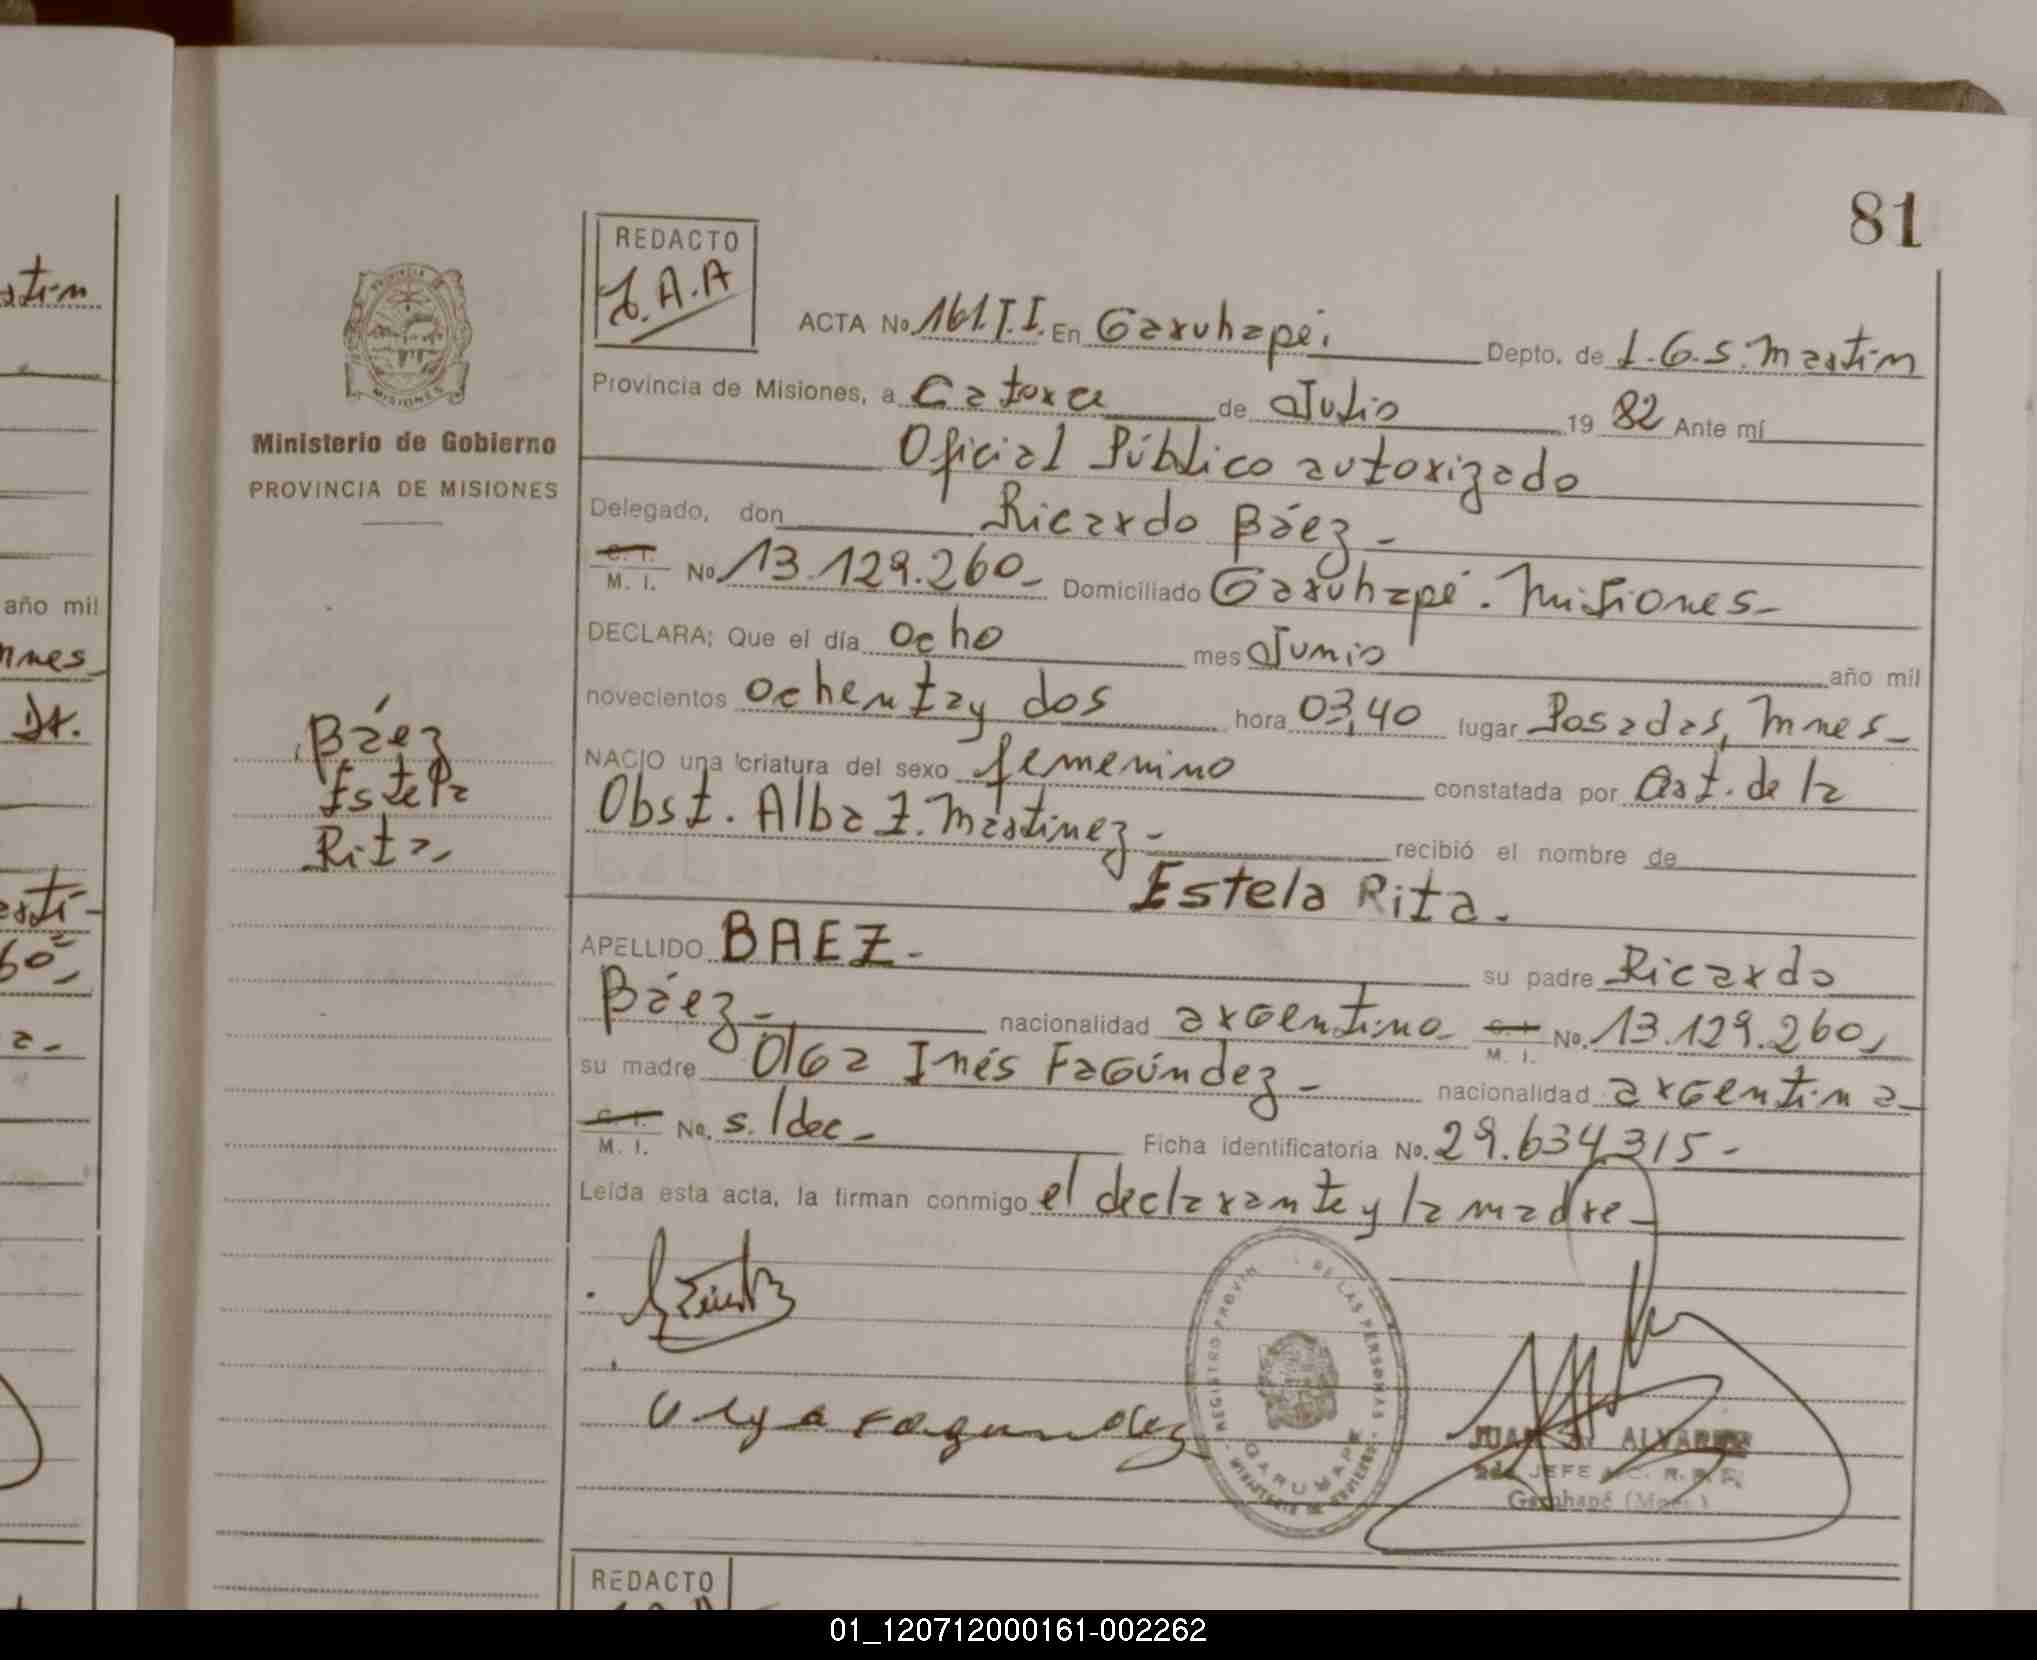 81
REDACTO
J.A.A
ACTA No. 161.T.I. En Garuhapé. Depto. de L.G.S. Martin
Provincia de Misiones, a Catorce de Julio 19 82 Ante mí
Oficial Público autorizado
Delegado, don Ricardo Báez -
C. I.
M. I. No 13.129.260- Domiciliado Garuhapé. Misiones-
DECLARA; Que el día ocho mes Junio año mil
novecientos ochenta y dos hora 03,40 lugar Posadas, Mnes-
NACIO una criatura del sexo femenino constatada por Cert. de la
Obst. Alba Z. Martinez- recibió el nombre de
Estela Rita.
APELLIDO BAEZ- su padre Ricardo
Báez- nacionalidad argentino- C. I. M. I. No. 13.129.260-
su madre Olga Inés Fagúndez- nacionalidad argentina-
C. I.
M. I. No. s./dec- Ficha identificatoria No. 29.634315-
Leída esta acta, la firman conmigo el declarante y la madre-
PROVINCIA DE
MISIONES
Ministerio de Gobierno
PROVINCIA DE MISIONES
Báez
Estela
Rita-
Olga Fagundez
REGISTRO PROVIN DE LAS PERSONAS
GARUHAPE
MINISTERIO DE GOBIERNO
JUAN ALVAREZ
2do JEFE R.
Garuhapé (Mnes.)
REDACTO
atin
año mil
nnes-
Dt.
60-
a-
01_120712000161-002262